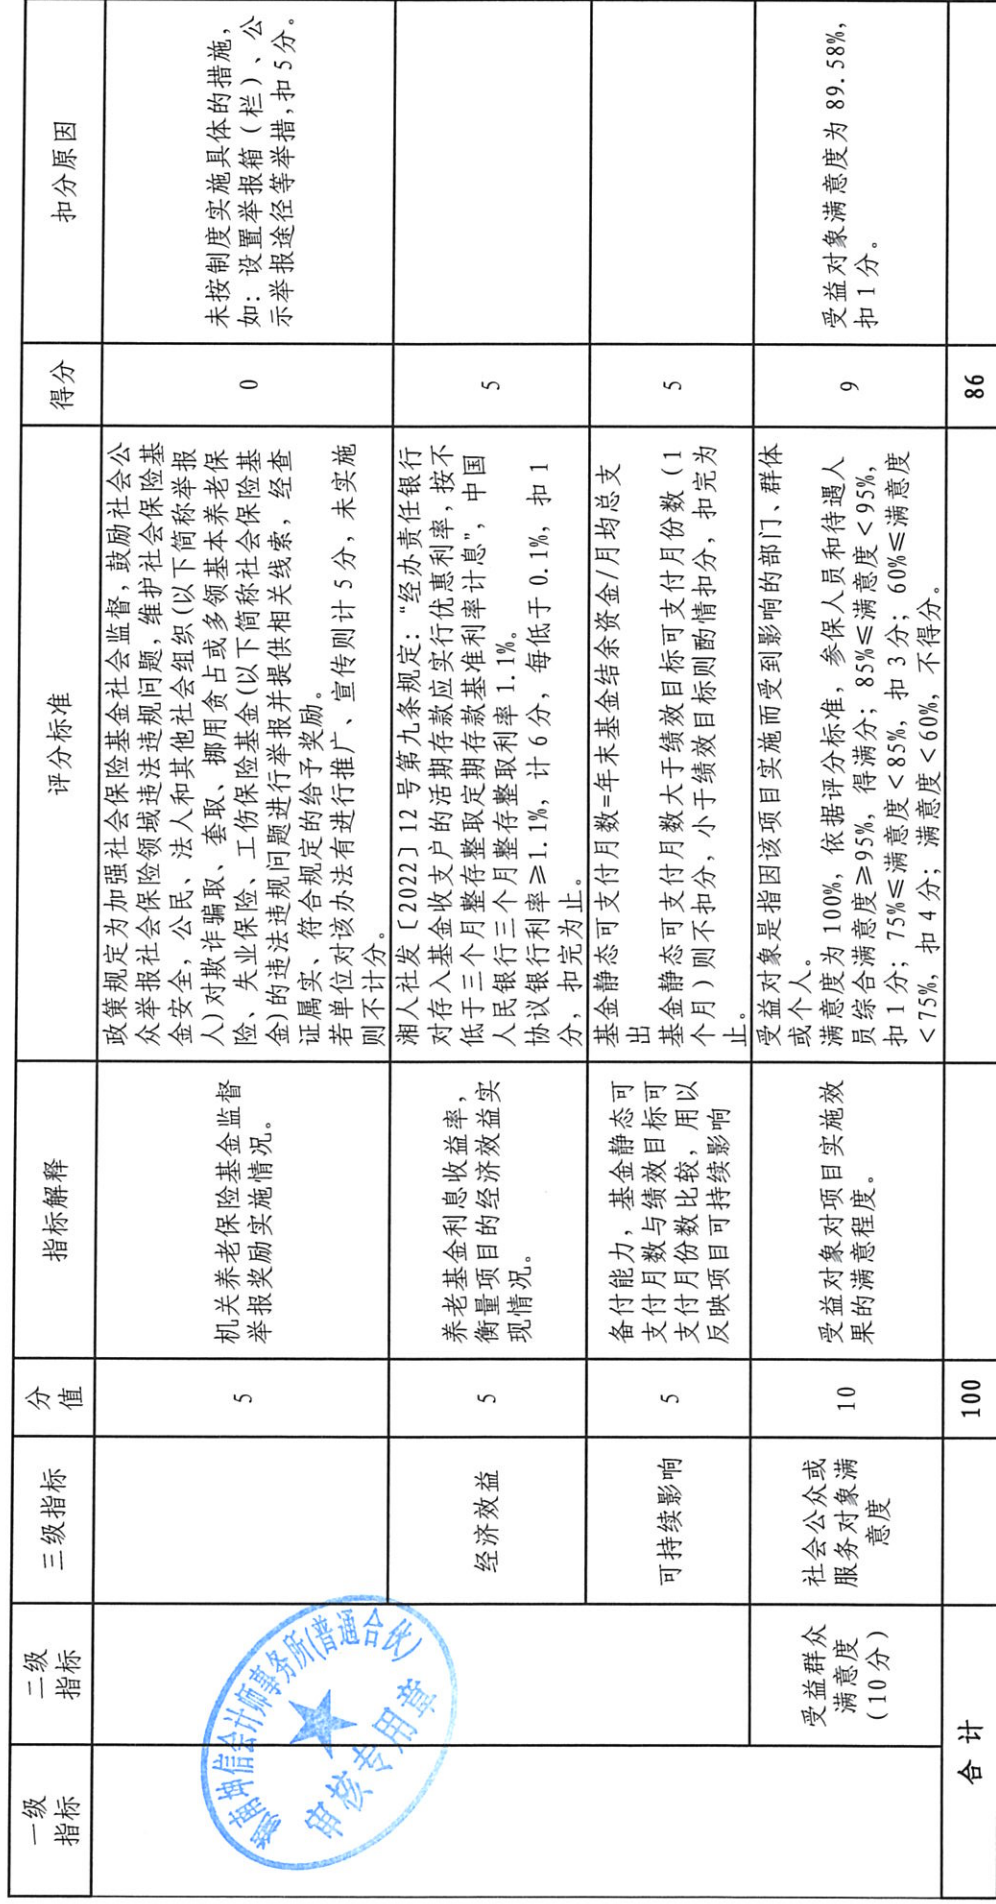 一级
指标
二级
指标
三级指标
分
值
指标解释
评分标准
得分
扣分原因
5
机关养老保险基金监督
举报奖励实施情况。
政策规定为加强社会保险基金社会监督，鼓励社会公
众举报社会保险领域违法违规问题，维护社会保险基
金安全，公民、法人和其他社会组织（以下简称举报
人）对欺诈骗取、套取、挪用贪占或多领基本养老保
险、失业保险、工伤保险基金（以下简称社会保险基
金）的违法违规问题进行举报并提供相关线索，经查
证属实、符合规定的给予奖励。
若单位对该办法有进行推广、宣传则计5分，未实施
则不计分。
0
未按制度实施具体的措施，
如：设置举报箱（栏）、公
示举报途径等举措，扣5分。
经济效益
5
养老基金利息收益率，
衡量项目的经济效益实
现情况。
湘人社发〔2022〕12号第九条规定：“经办责任银行
对存入基金收支户的活期存款应实行优惠利率，按不
低于三个月整存整取定期存款基准利率计息”，中国
人民银行三个月整存整取利率1.1%。
协议银行利率≥1.1%，计6分，每低于0.1%，扣1
分，扣完为止。
5
可持续影响
5
备付能力，基金静态可
支付月数与绩效目标可
支付月份数比较，用以
反映项目可持续影响
基金静态可支付月数=年末基金结余资金/月均总支
出
基金静态可支付月数大于绩效目标可支付月份数（1
个月）则不扣分，小于绩效目标则酌情扣分，扣完为
止。
5
受益群众
满意度
（10分）
社会公众或
服务对象满
意度
10
受益对象对项目实施效
果的满意程度。
受益对象是指因该项目实施而受到影响的部门、群体
或个人。
满意度为100%，依据评分标准，参保人员和待遇人
员综合满意度≥95%，得满分；85%≤满意度<95%，
扣1分；75%≤满意度<85%，扣3分；60%≤满意度
<75%，扣4分；满意度<60%，不得分。
9
受益对象满意度为89.58%，
扣1分。
合计
100
86
信会计师事务所(普通合伙)
审核专用章